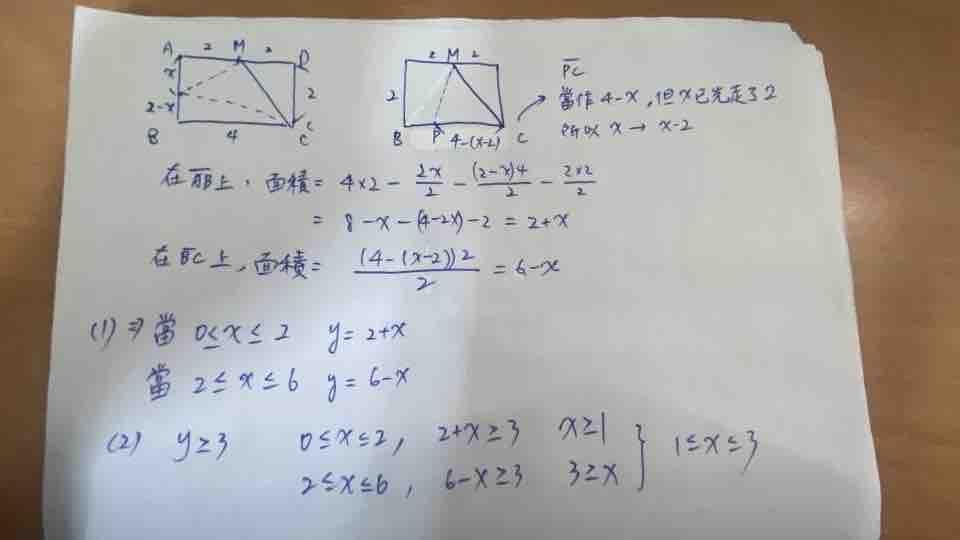 A 2 M 2 D
x
2-x
2
B 4 C
C
2 M 2
2
B P 4-(x-2) C
PC
當作 4-x, 但 x 已先走了 2
所以 x → x-2
在 AB 上, 面積 = 4×2 - 2x/2 - (2-x)4/2 - 2×2/2
= 8-x-(4-2x)-2 = 2+x
在 BC 上, 面積 = (4-(x-2))2/2 = 6-x
(1) ⇒ 當 0≤x≤2 y=2+x
當 2≤x≤6 y=6-x
(2) y≥3 0≤x≤2, 2+x≥3 x≥1 } 1≤x≤3
2≤x≤6, 6-x≥3 3≥x